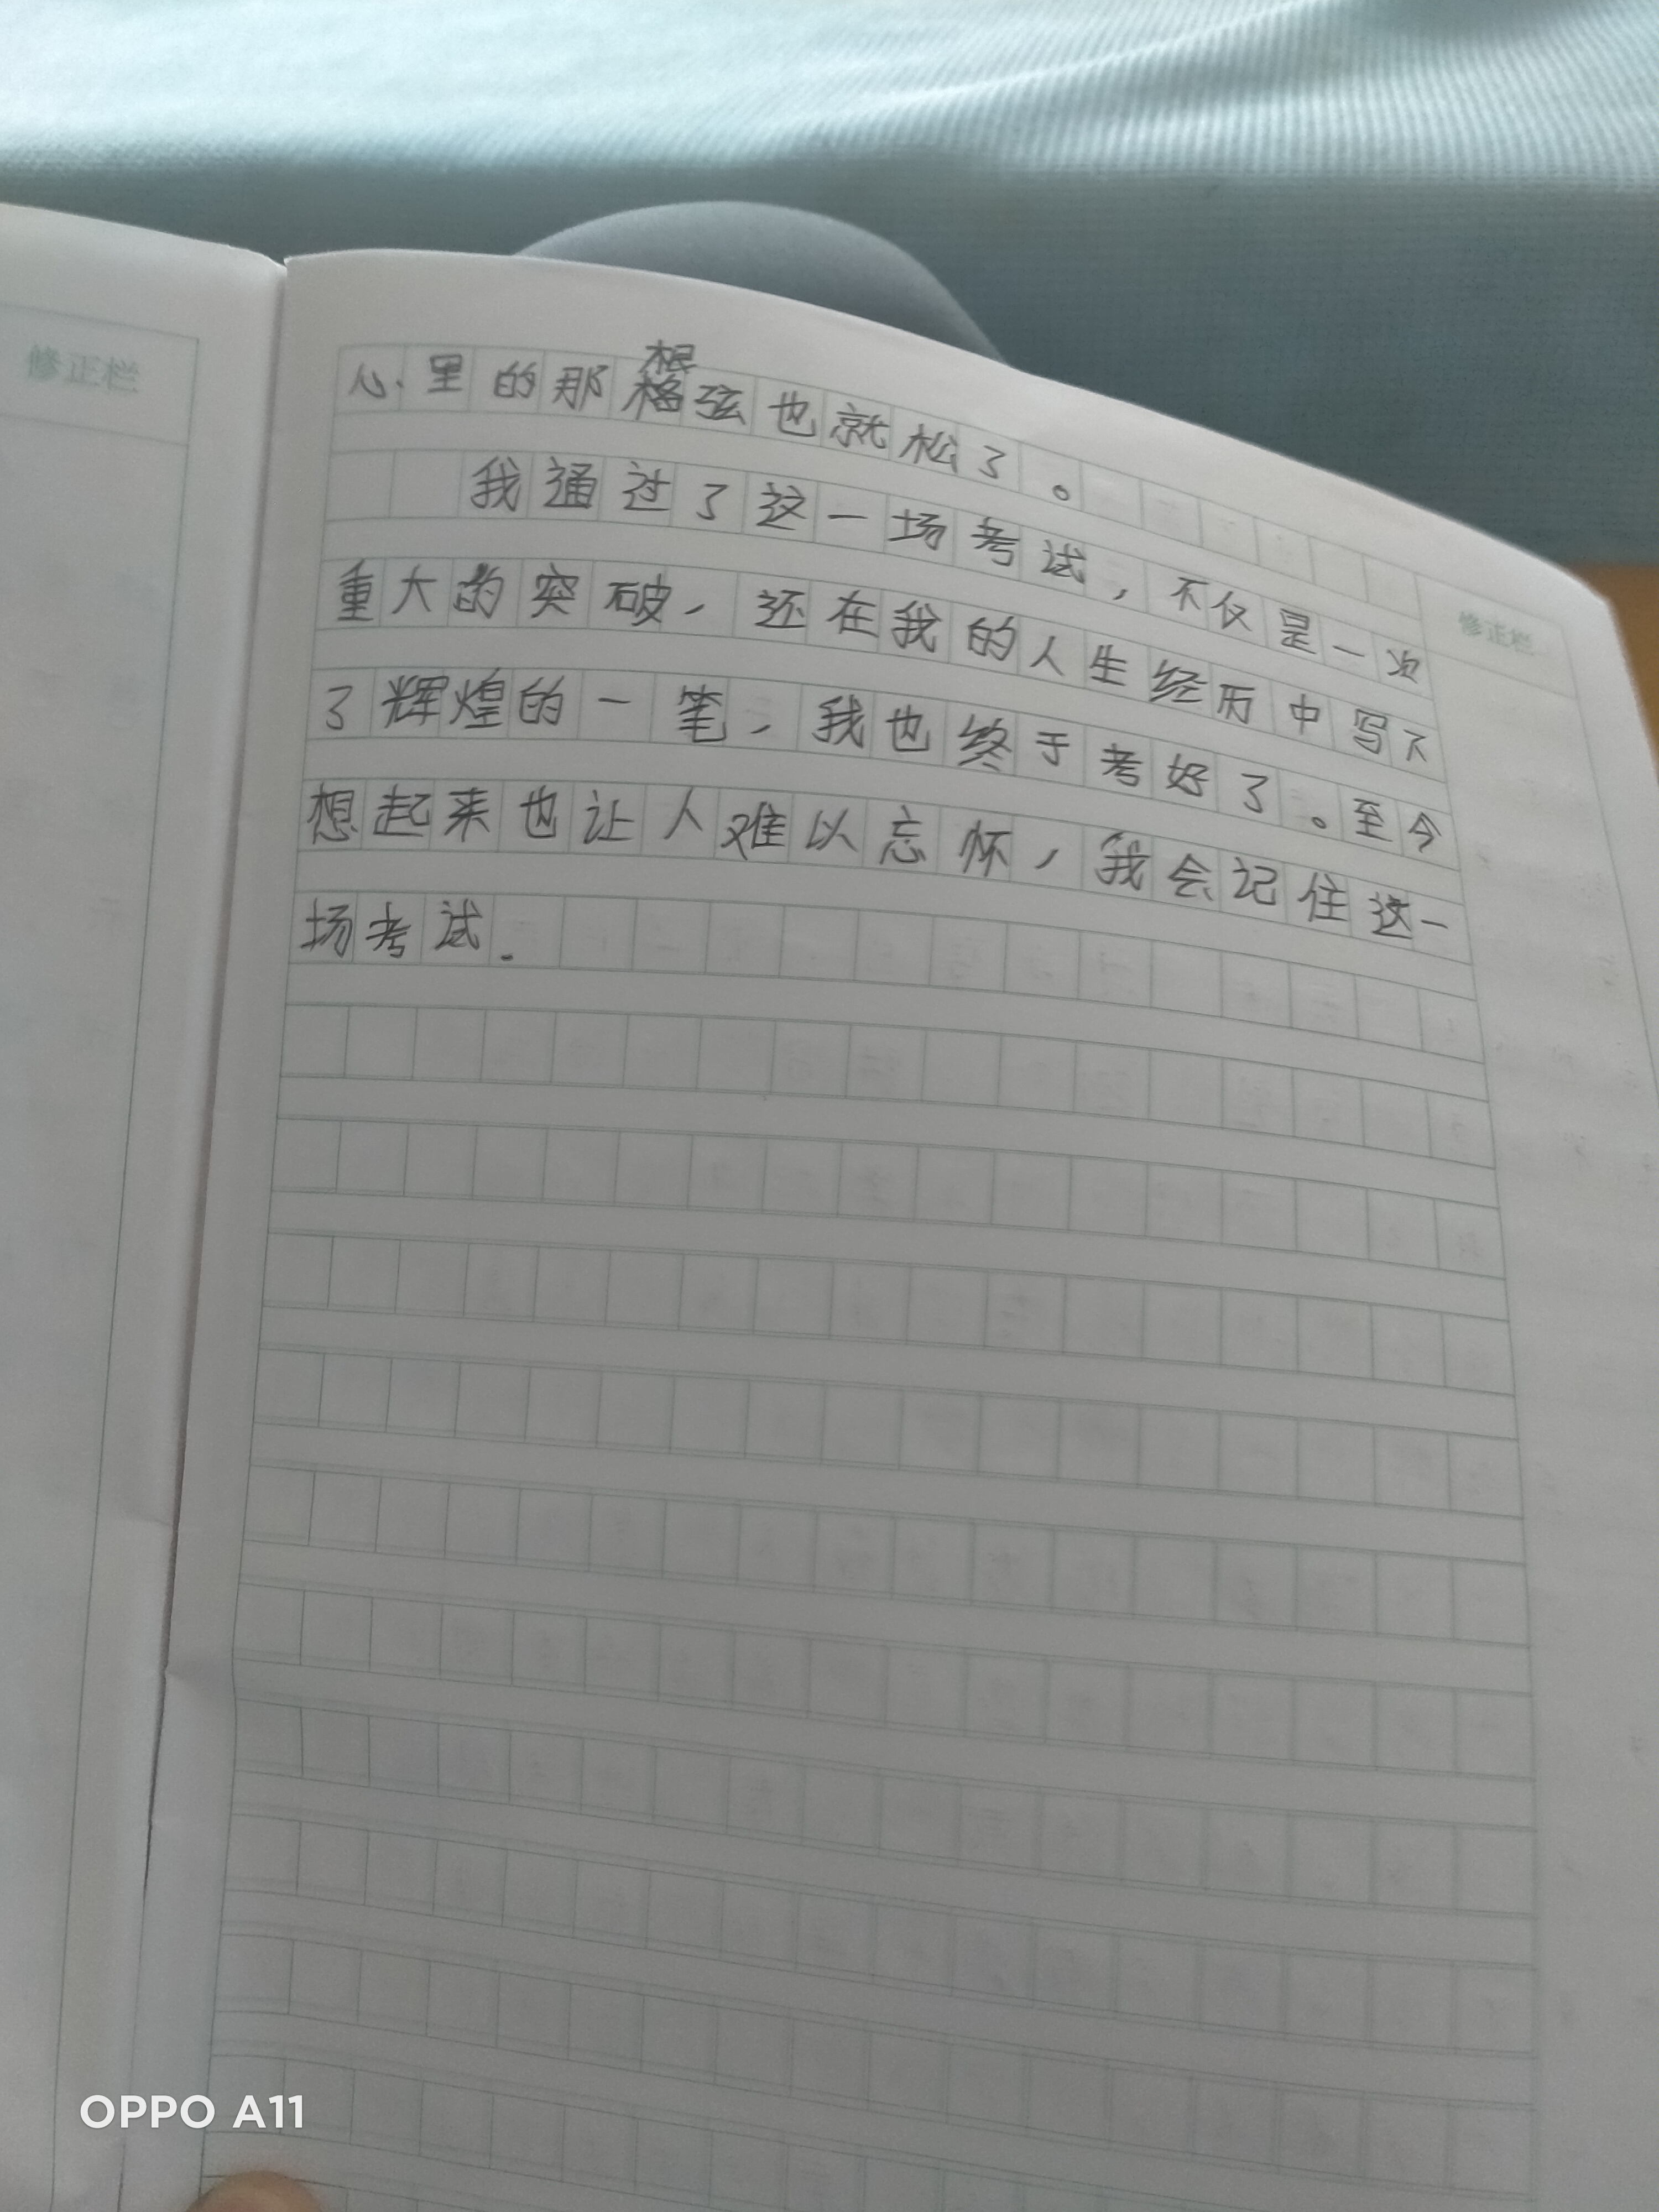 修正栏
根
心里的那格弦也就松了。
我通过了这一场考试,不仅是一次
重大的突破,还在我的人生经历中写下
了辉煌的一笔,我也终于考好了。至今
想起来也让人难以忘怀,我会记住这一
场考试.
修正栏
OPPO A11